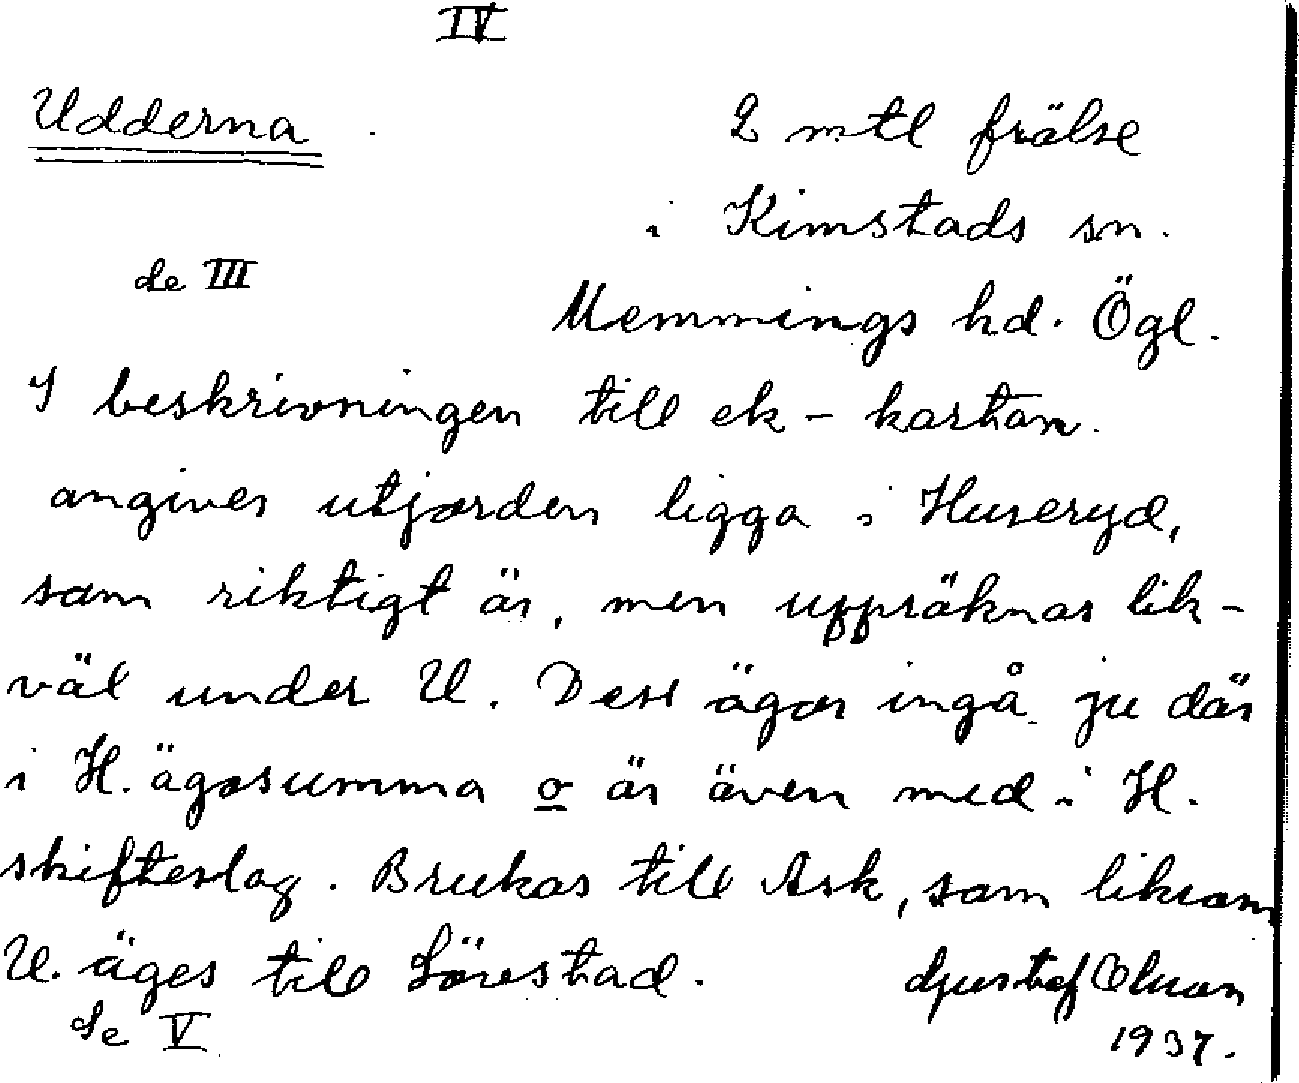 IV
Udderna. 2 mtl frälse
i Kimstads sn.
se III
Memmings hd. Ögl.
I beskrivningen till ek-kartan.
angives utjorden ligga i Huseryd,
som riktigt är, men uppräknas lik-
väl under U. Dess ägor ingå ju där
i H. ägosumma o är även med i H.
skifteslag. Brukas till Ask, som liksom
U. äges till Lörestad. Gustaf Olsson
Se V 1937.